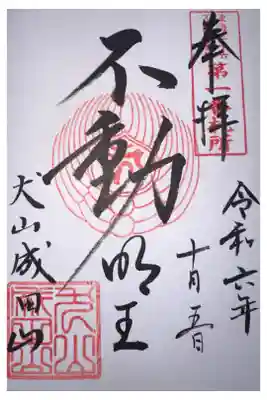 奉拝
令和六年
十月五日
不動明王
犬山成田山